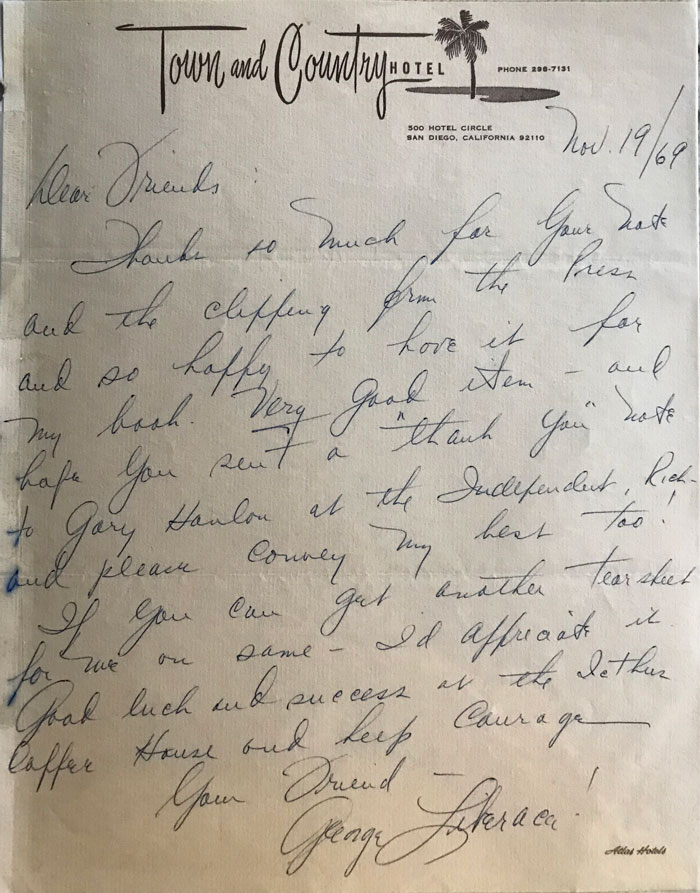 Town and Country HOTEL
PHONE 296-7131
500 HOTEL CIRCLE
SAN DIEGO, CALIFORNIA 92110
Nov. 19/69
Dear Friends:
Thanks so much for your note
and the clipping from the Press
and so happy to have it for
my book. Very good item - and
hope you sent a "thank you" note
to Gary Hanlon at the Independent, Rich-
and please convey my best too!
If you can get another tearsheet
for me on same - I'd appreciate it
Good luck and success at the Icthus
Coffee House and keep Courage
Your Friend -
George Liberace!
Atlas Hotels